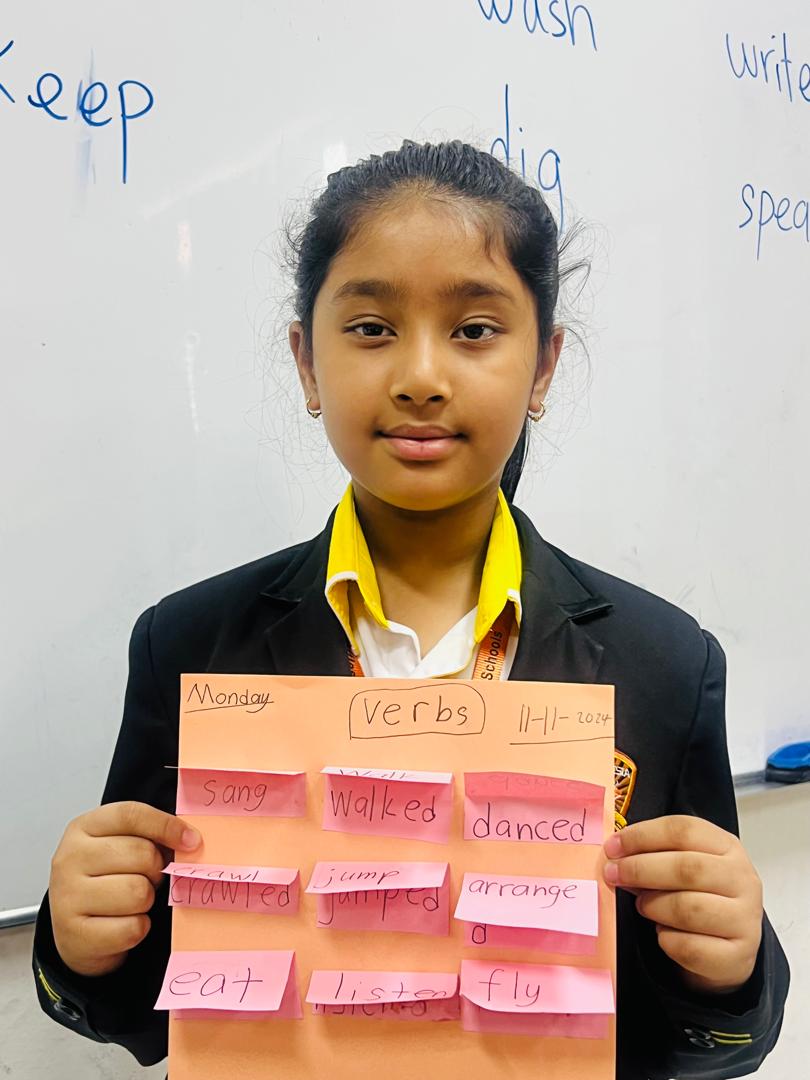 wash
Keep
write
dig
spea
Schools
Monday
verbs
11-11-2024
sang
walk
walked
danced
crawl
crawled
jump
jumped
arrange
d
eat
listen
listened
fly